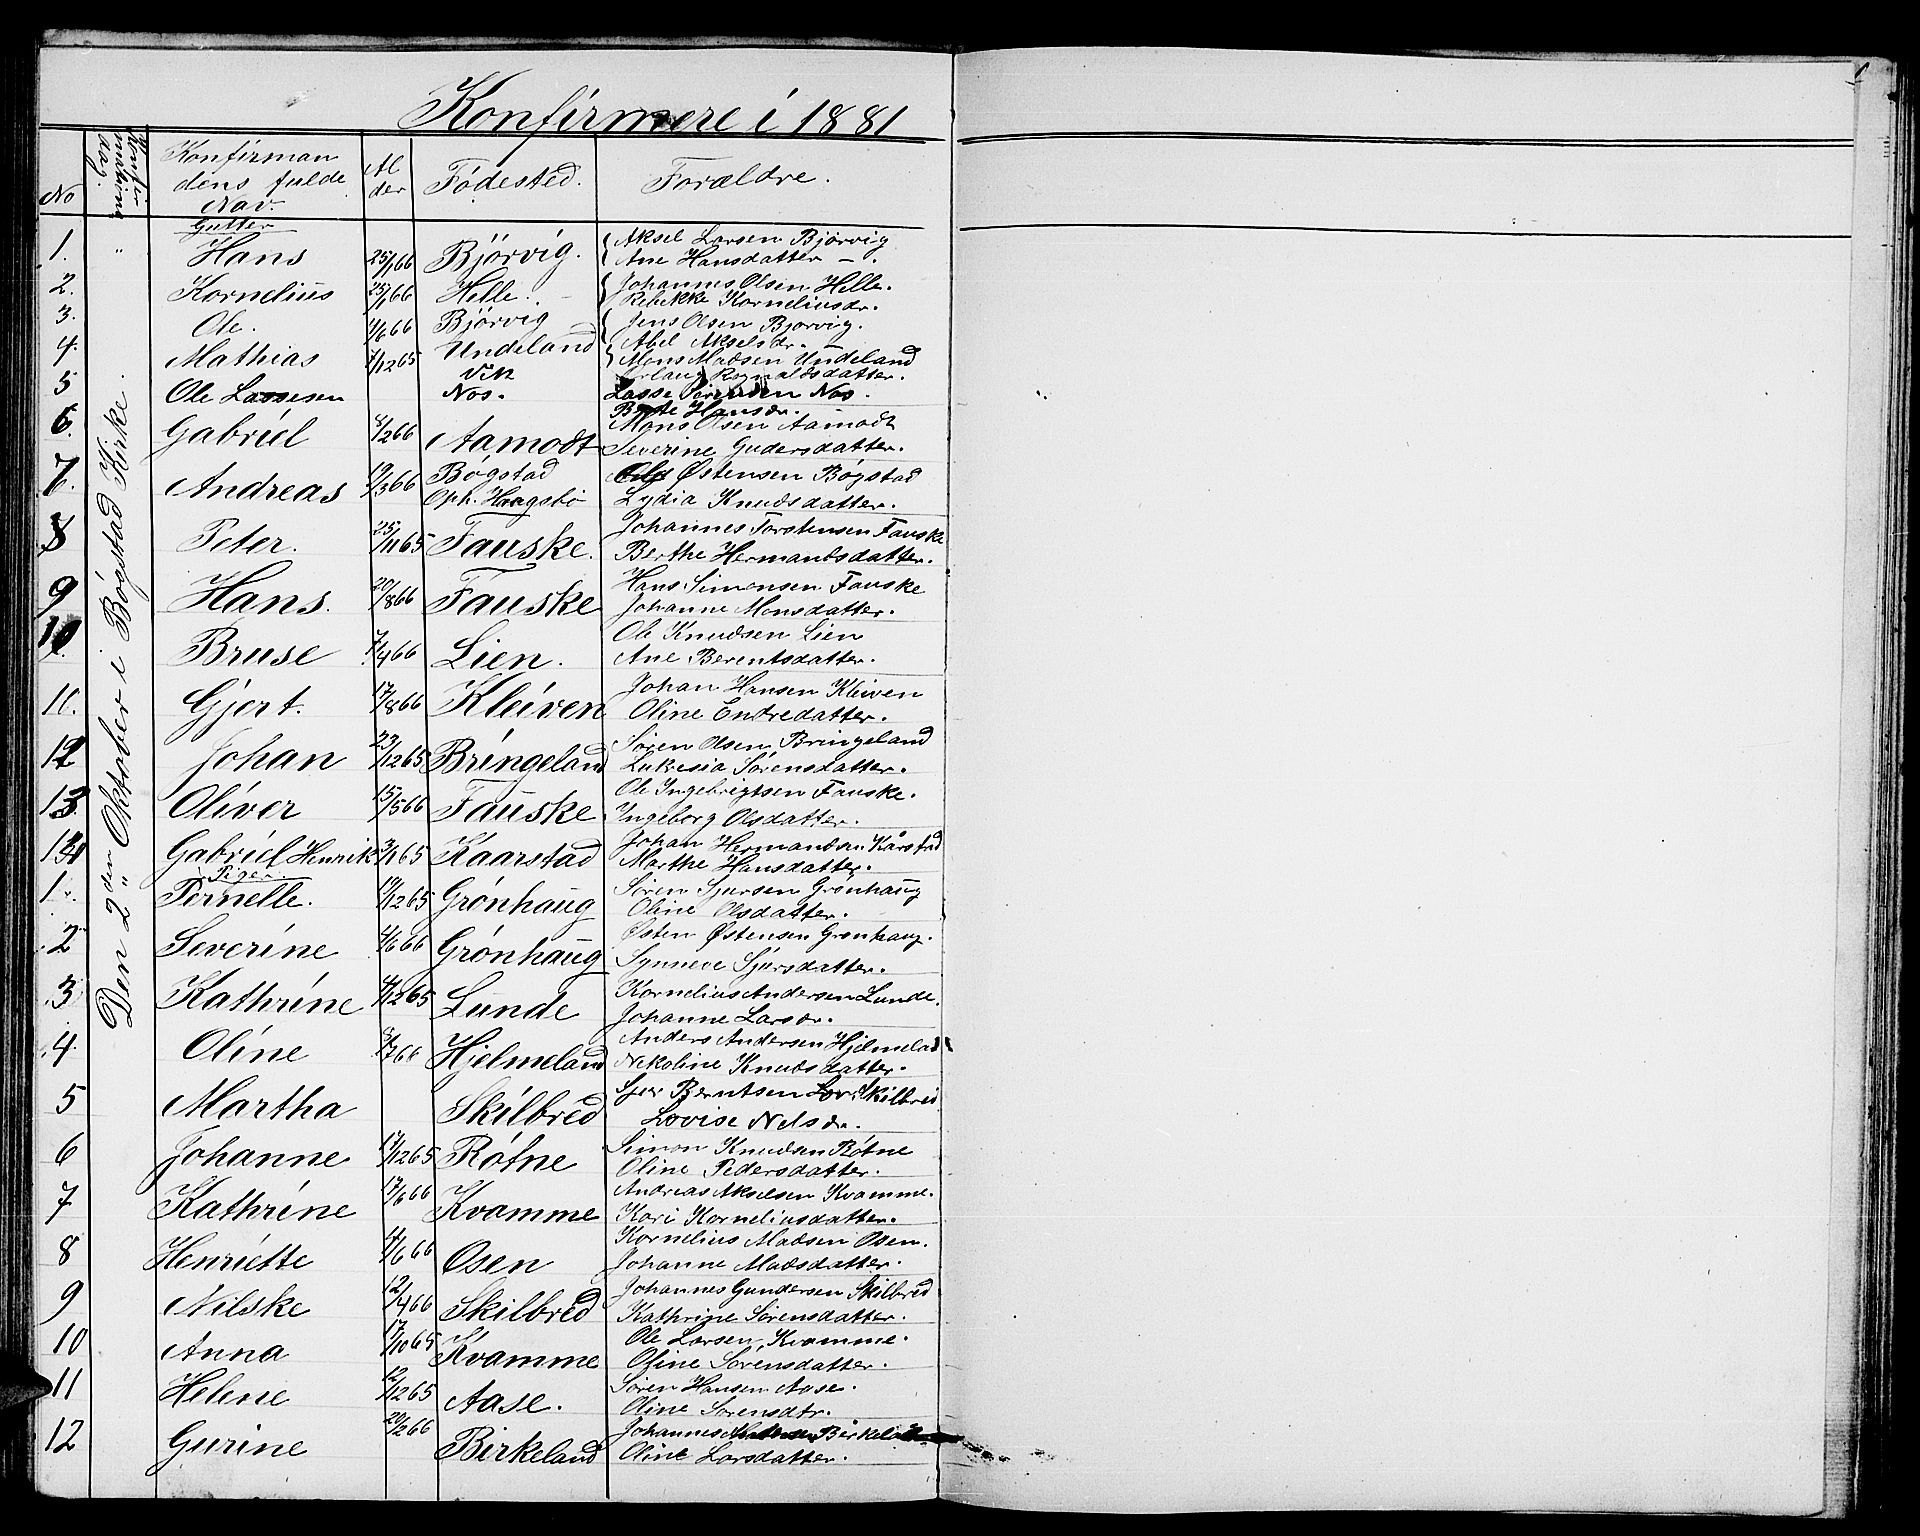 Konfirmere i 1881
No
Konfir
mations
dag.
Konfirman
dens fulde
Nav.
Al
der
Fødested.
Forældre.
Den 2den Oktober i Bøgstad Kirke.
Gutter
1. " Hans 25/1 66 Bjørvig. Aksel Larsen Bjørvig
Ane Hansdatter — .
2. Kornelius 25/1 66 Helle. Johannes Olsen Helle.
Rebekke Korneliusdr.
3. Ole. 4/6 66 Bjørvig Jens Olsen Bjørvig.
Abel Akselsdr.
4. Mathias 7/12 65 Undeland Mons Madsen Undeland
Vik Ragnaldsdatter.
5 Ole Lassesen Nos. Lasse Nos.
Hansdr.
6. Gabriel 8/2 66 Aamodt Mons Olsen Aamodt
Severine Gudersdatter.
7. Andreas 19/3 66 Bøgstad Østensen Bøgstad
Oph. Haagsbø Lydia Knudsdatter.
8 Peter. 25/11 65 Fauske. Johannes Torstensen Fauske
Berthe Hermandsdatter.
9 Hans. 20/8 66 Fauske Hans Simonsen Fauske
Johanne Monsdatter.
10 Bruse 7/4 66 Lien. Ole Knudsen Lien
Ane Berentsdatter.
11. Gjert. 17/8 66 Kleiven Johan Hansen Kleiven
Oline Endredatter.
12 Johan 23/12 65 Bringeland Søren Olsen Bringeland
Lukresia Sørensdatter.
13 Oliver 15/5 66 Fauske Ole Ingebrigtsen Fauske.
Ingeborg Olsdatter.
Gabriel Henrik 65 Kaarstad Johan Hermandsen Kårstad
Marthe Hansdatter.
Piger.
1. Pernelle. 19/12 65 Grønhaug Søren Sjursen Grønhaug
Oline Olsdatter.
2 Severine 4/6 66 Grønhaug Østen Østensen Grønhaug.
Synneve Sjursdatter.
3 Kathrine 4/12 65 Lunde Kornelius Andersen Lunde.
Johanne Larsdr.
4. Oline 66 Hjelmeland Anders Andersen Hjelmelad
Nekoline Knudsdatter.
5 Martha Skilbred Sjur Berntsen Skilbred
Lovise Nelsdr.
6 Johanne 17/12 65 Røtne Simon Knudsen Røtne
Oline Pedersdatter.
7 Kathrine 17/6 66 Kvamme Andreas Akselsen Kvamme.
Kari Korneliusdatter.
8 Henriette 4/6 66 Osen Kornelius Madsen Osen.
Johanne Madsdatter.
9 Nilske 12/4 66 Skilbred Johannes Gundersen Skilbred
Kathrine Sørensdatter.
10 Anna 17/10 65 Kvamme Ole Larsen, Kvamme.
Oline Sørensdatter.
11 Helene 12/12 65 Aase. Søren Hansen Aase.
Oline Sørensdtr.
12 Gurine 20/2 66 Birkeland Johannes
Oline Larsdatter.